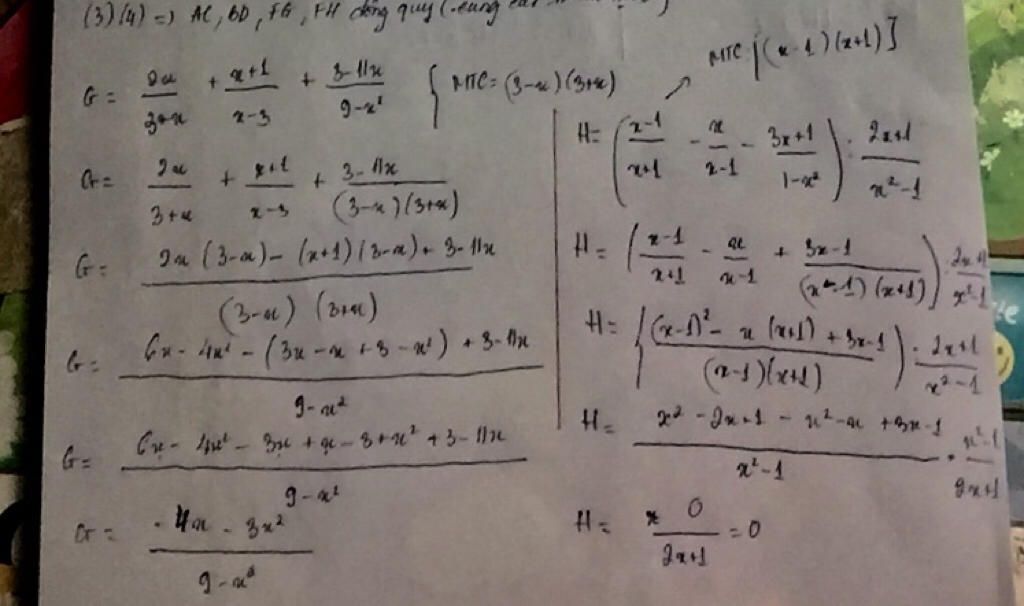 (3)(4) => AC, BD, FG, FH đồng quy (cùng
G = 2x/(3+x) + (x+1)/(x-3) + (3-11x)/(9-x²) { MTC = (3-x)(3+x)
G = 2x/(3+x) + (x+1)/(x-3) + (3-11x)/((3-x)(3+x))
G = (2x(3-x) - (x+1)(3-x) + 3-11x)/((3-x)(3+x))
G = (6x - 4x² - (3x - x + 3 - x²) + 3-11x)/(9-x²)
G = (6x - 4x² - 3x + x - 3 + x² + 3 - 11x)/(9-x²)
G = (-4x - 3x²)/(9-x²)
MTC: [(x-1)(x+1)]
H = ((x-1)/(x+1) - x/(x-1) - (3x+1)/(1-x²)) : (2x+1)/(x²-1)
H = ((x-1)/(x+1) - x/(x-1) + (3x-1)/((x-1)(x+1))) : (2x+1)/(x²-1)
H = (((x-1)² - x(x+1) + 3x-1)/((x-1)(x+1))) : (2x+1)/(x²-1)
H = (x² - 2x+1 - x² - x + 3x-1)/(x²-1) . (x²-1)/(2x+1)
H = 0/(2x+1) = 0